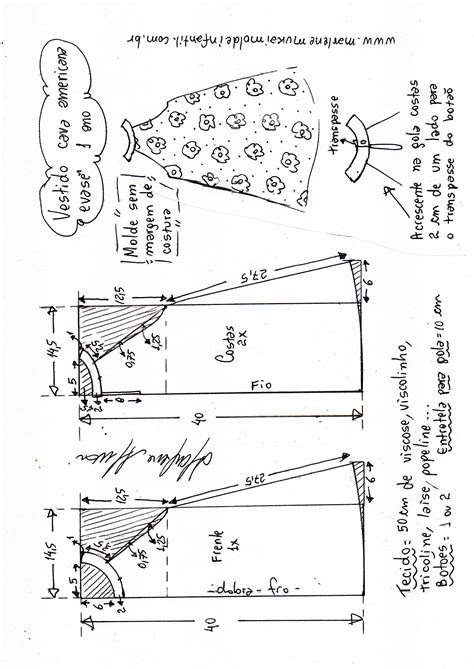 Vestido cava americana
evasê 1 ano
www.marlenemukaimoldeinfantil.com.br
Molde sem
margem de
costura
transpasse
Acrescente na gola costas
2 cm de um lado para
o transpasse do botão
14,5
12,5
5
1
2,5
6
2
0,75
1,25
Frente
1x
dobra - fio
40
27,5
6
14,5
12,5
5
1
2,5
2
8
0,75
1,25
Costas
2x
Fio
40
27,5
6
Tecido = 50 cm de viscose, viscolinho,
tricoline, laise, popeline...
Botões = 1 ou 2
Entretela para gola = 10 cm